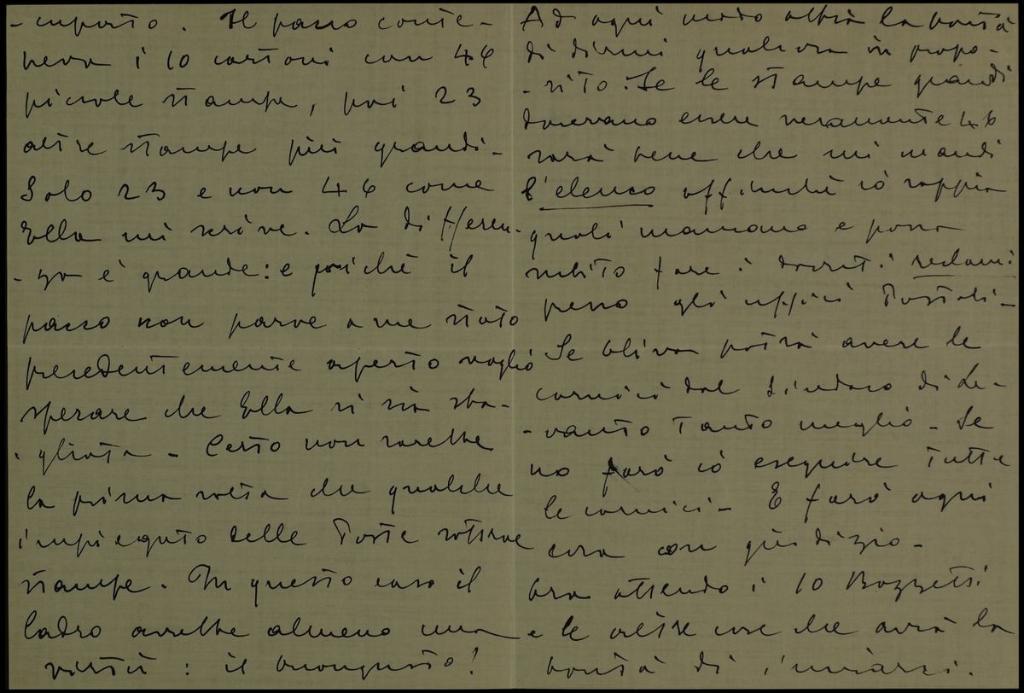 -cuperto. Il pacco conte-
neva i 10 cartoni con 46
piccole stampe, poi 23
altre stampe più grandi-
Solo 23 e non 46 come
Ella mi scrive. La differen-
-za è grande: e poiché il
pacco non parve a me stato
precedentemente aperto voglio
sperare che Ella si sia sba-
-gliata - Certo non sarebbe
la prima volta che qualche
impiegato delle Poste sottrae
stampe. In questo caso il
ladro avrebbe almeno una
virtù: il buongusto!
Ad ogni modo abbia la bontà
di dirmi qualcosa in propo-
-sito. Se le stampe grandi
dovevano essere veramente 46
sarà bene che mi mandi
l'elenco affinché io sappia
quali mancano e possa
subito fare i dovuti reclami
presso gli uffici Postali-
Se Oliva potrà avere le
cornici dal Sindaco di Le-
-vanto tanto meglio - Se
no farò io eseguire tutte
le cornici - E farò ogni
cosa con giudizio-
Ora attendo i 10 Bozzetti
e le altre cose che avrà la
bontà di inviarsi.